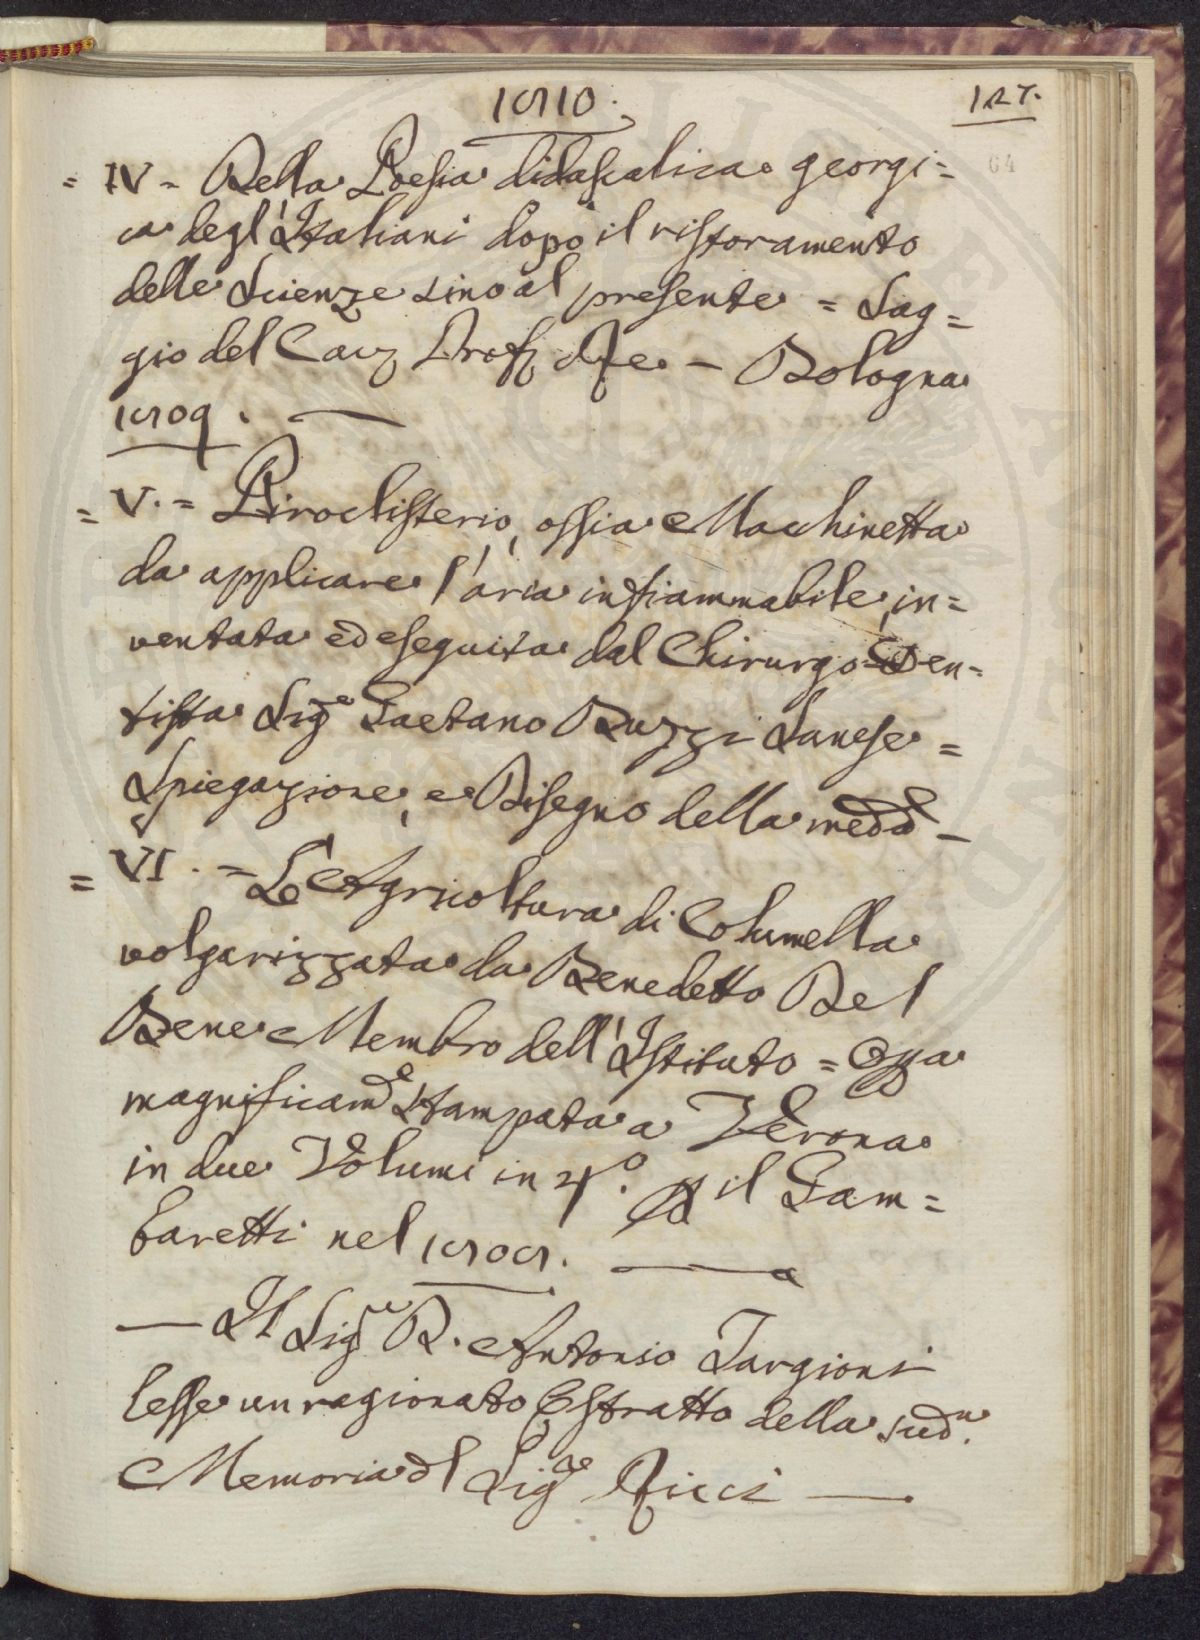 1810. 127.
64
= IV - Della Poesia didascalica georgi=
ca degl'Italiani dopo il ristoramento
delle Scienze sino al presente = Sag=
gio del Cav. Prof. Re - Bologna
1809. —
= V. = Piroclisterio, ossia Macchinetta
da applicare l'aria infiammabile, in=
ventata ed eseguita dal Chirurgo-Den-
tista Sig.e Gaetano Ruzzi Sanese =
Spiegazione, e Disegno della med.a —
= VI. = L'Agricoltura di Columella
volgarizzata da Benedetto Del
Bene Membro dell'Istituto = Opa
magnificam.e Stampata a Verona
in due Volumi in 4.o p il Gam=
baretti nel 1808. —
— Il Sig.e D. Antonio Targioni
lesse un ragionato Estratto della sud.a
Memoria dl Sig.e Ricci —